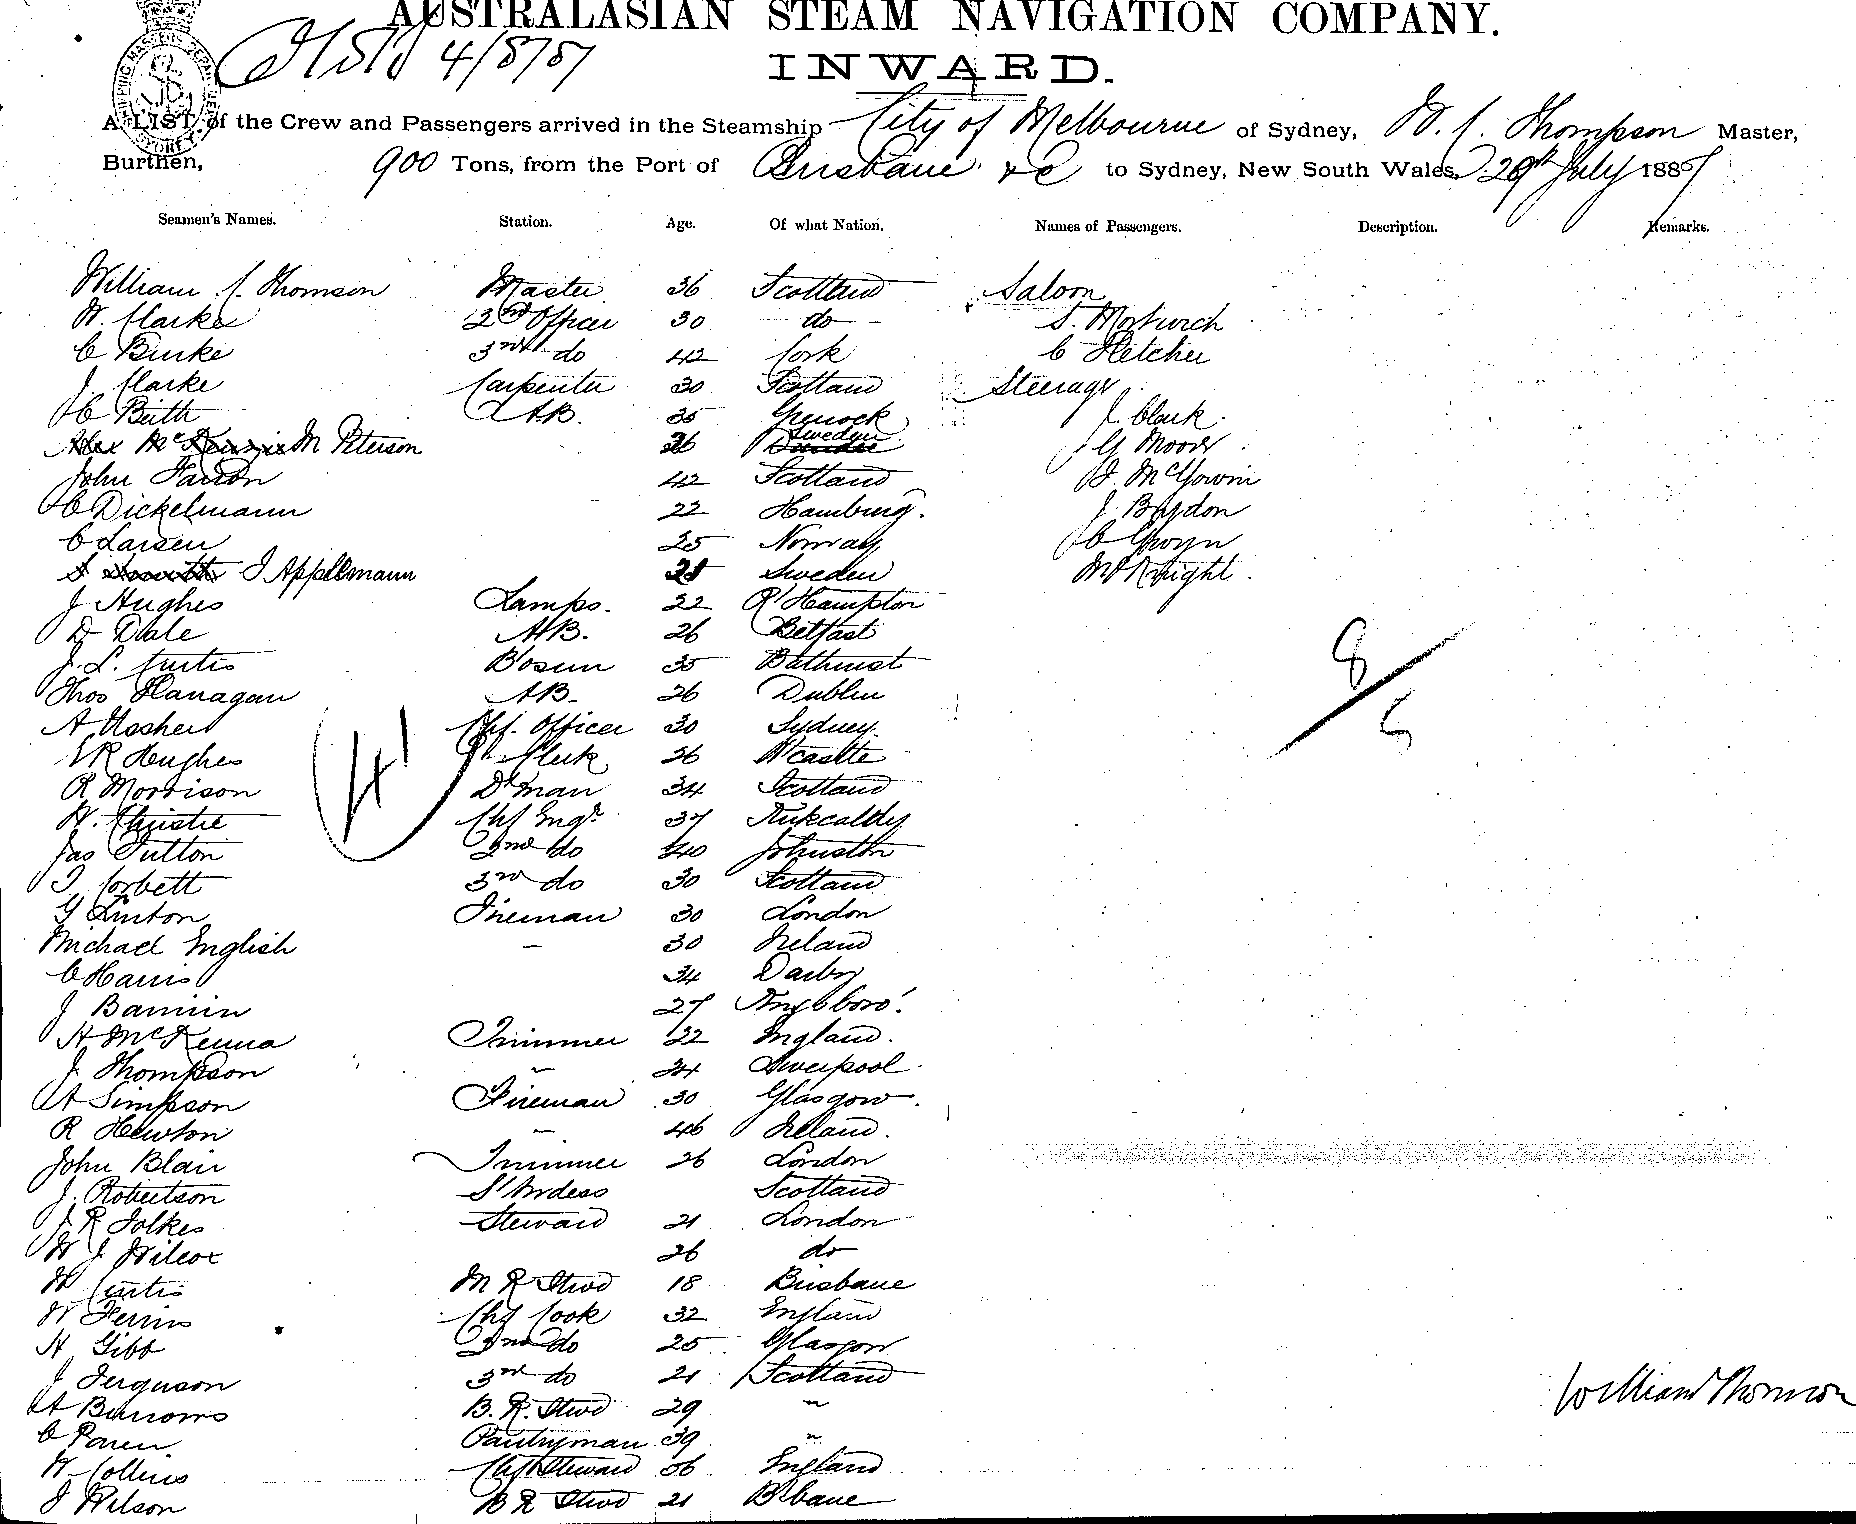 AUSTRALASIAN STEAM NAVIGATION COMPANY.
4/8/87
INWARD.
A LIST of the Crew and Passengers arrived in the Steamship City of Melbourne of Sydney, W. C. Thompson Master,
Burthen, 900 Tons, from the Port of Brisbane &c to Sydney, New South Wales, 29th July 1887
Seamen's Names. Station. Age. Of what Nation. Names of Passengers. Description. Remarks.
William C. Thomson Master 36 Scotland Saloon
W. Clarke 2nd Officer 30 do S. Mortwich
C Burke 3rd do 42 Cork C Fletcher
J Clarke Carpenter 30 Scotland Steerage
H C Bith A.B. 35 Greenock J. Clark
Alex McKenzie M Peterson 26 Sweden Dundee G Moore
John Farron 42 Scotland J. McGowin
H C Dickelmann 22 Hamburg. J. Boydon
C Larsen 25 Norway C Gwyn
J Smith J Appellmann Sweden McKnight
J Hughes Lamps. 22 R'Hampton
D Dale A.B. 26 Belfast
J. L. Curtis Bosun 35 Bathurst
Thos Flanagan A.B. 26 Dublin
A Mosher Chf. Officer 30 Sydney
V R Hughes Clerk 26 N'castle
R Morrison D'man 34 Scotland
W. Christie Chf Engr 37 Kirkcaldy
Jas Fulton 2nd do 40 Johnston
J Corbett 3rd do 30 Scotland
G Linton Fireman 30 London
Michael English 30 Ireland
C Harris 34 Darby
J Bannin 27
H McKenna Trimmer 22 England.
J. Thompson " 24 Liverpool
A Simpson Fireman 30 Glasgow.
R Hewton " 46 Ireland.
John Blair Trimmer 26 London
J. Robertson S'Ardess Scotland
J R Folkes Steward 21 London
W J Wilcox 26 do
W Curtis M R Stwd 18 Brisbane
W Ferris Chf Cook 32 England
A Gibb 2nd do 25 Glasgow
J Ferguson 3rd do 21 Scotland
A Burrows B. R. Stwd 29 "
C Paren Pantryman 39 "
W Collins Chf Steward 36 England
J Wilson B R Stwd 21 B'bane
8/6
William Thomson